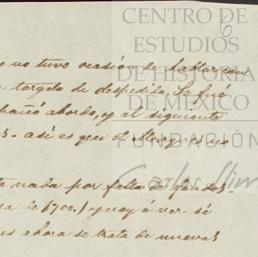 CENTRO DE
ESTUDIOS
DE HISTORIA
DE MÉXICO
FUNDACIÓN
Carlos Slim
6
no tuvo ocasión de hablar con
targeta de despedida. Se
abordo, y al siguiente
así es que el
nada por falta de fondos.
de $700.) y voy á ver si
es ahora se trata de nuevas